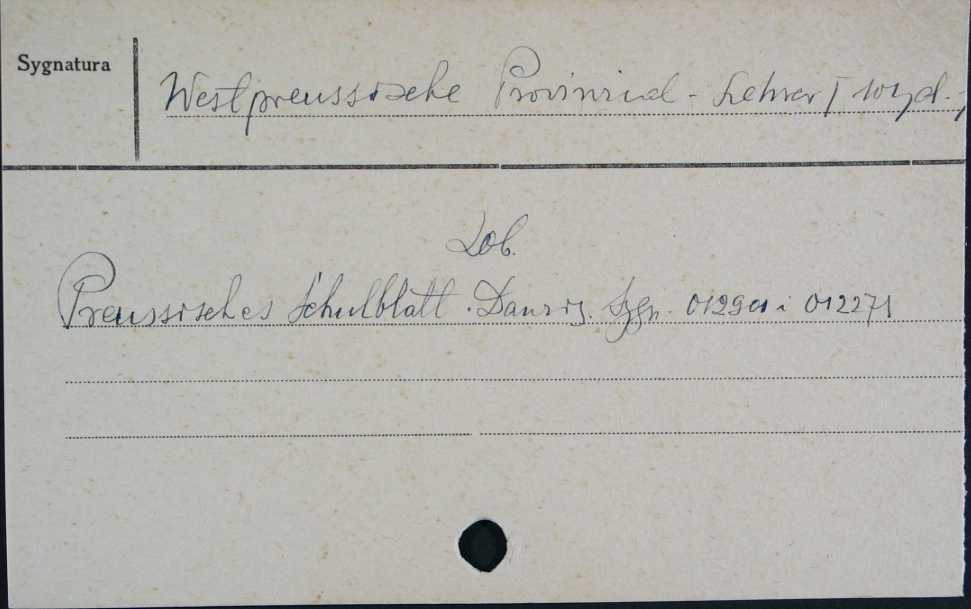 Sygnatura
Westpreussische Provinzial-Lehrer / wyd.
Zob.
Preussisches Schulblatt. Danzig. Sygn. 012901 i 012271